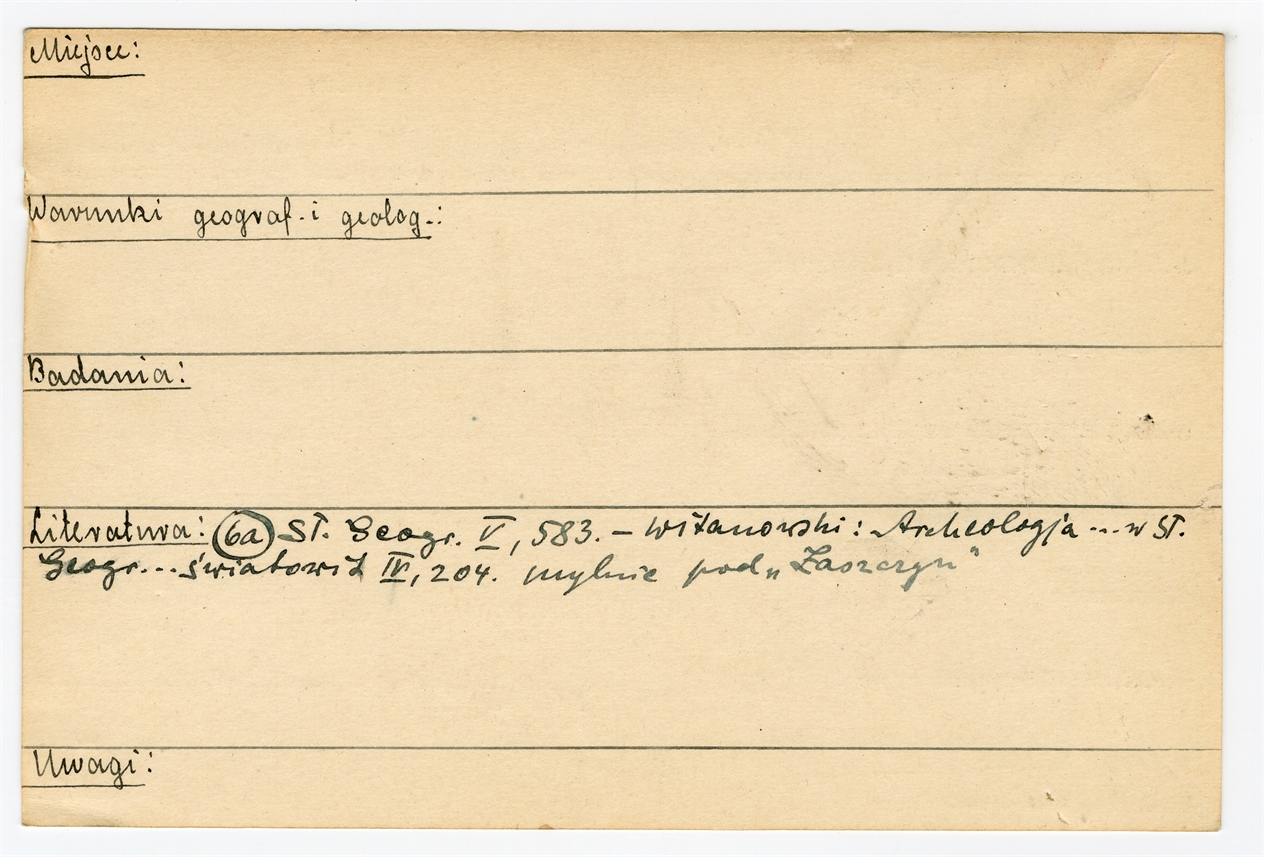 Miejsce:
Warunki geograf. i geolog.:
Badania:
Literatura: (6a) Sł. Geogr. V, 583. – Witanowski: Archeologja ... w Sł.
Geogr... Światowit IV, 204. mylnie pod „Łaszczyn"
Uwagi: